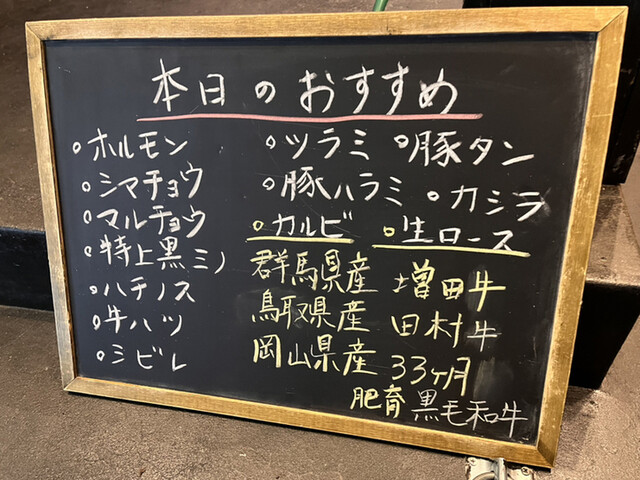 本日のおすすめ
○ホルモン
○シマチョウ
○マルチョウ
○特上黒ミノ
○ハチノス
○牛ハツ
○シビレ
○ツラミ ○豚タン
○豚ハラミ ○カシラ
○カルビ ○生ロース
群馬県産 増田牛
鳥取県産 田村牛
岡山県産 33ヶ月
肥育 黒毛和牛